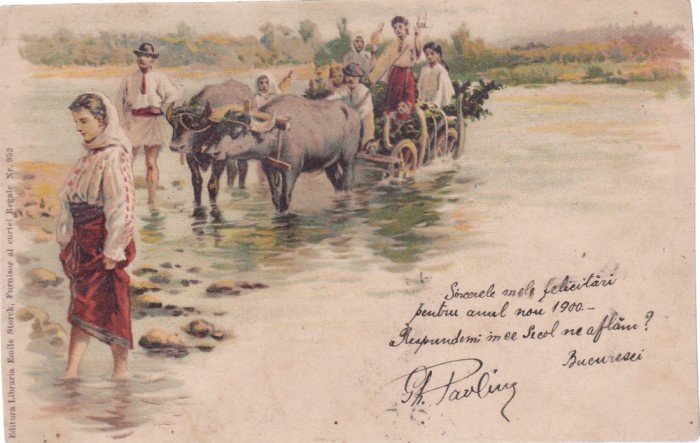 Sincerele mele felicitări
pentru anul nou 1900.–
Respundemi in ce Secol ne aflăm?
Bucuresci
Gh. Pavling
Editura Libraria Emile Storck, Furnisor al curtei Regale Nr. 952